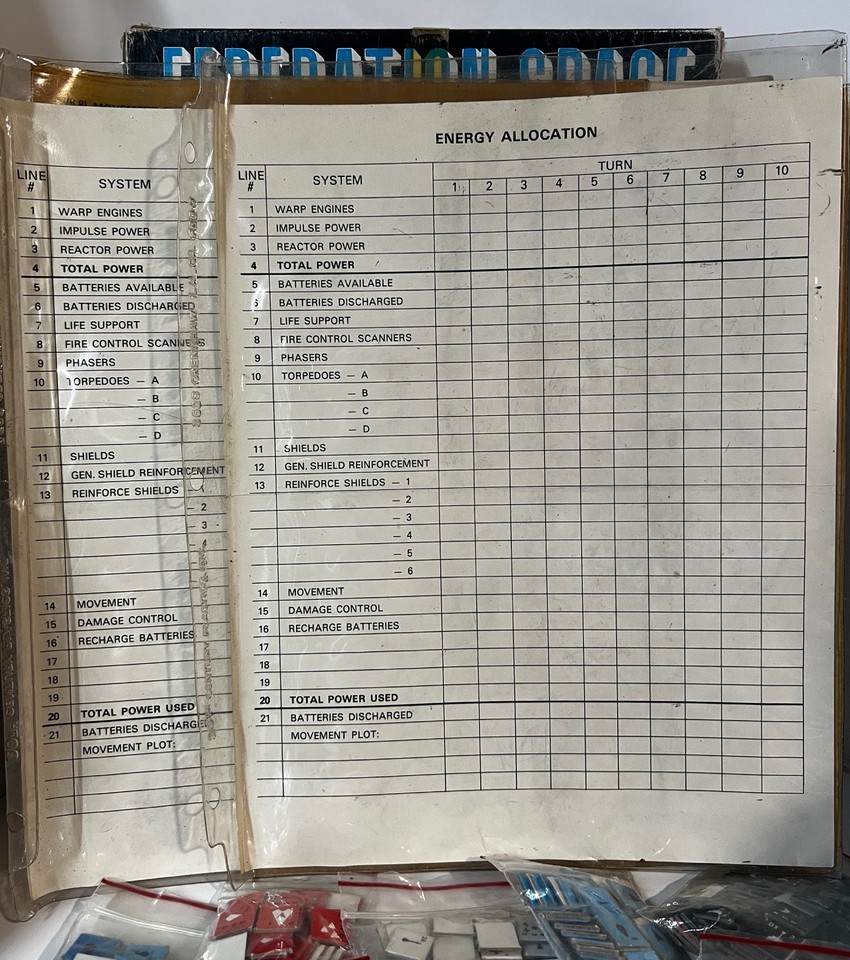 FEDERATION SPACE
ENERGY ALLOCATION
LINE # SYSTEM
1 WARP ENGINES
2 IMPULSE POWER
3 REACTOR POWER
4 TOTAL POWER
5 BATTERIES AVAILABLE
6 BATTERIES DISCHARGED
7 LIFE SUPPORT
8 FIRE CONTROL SCANNERS
9 PHASERS
10 TORPEDOES – A
– B
– C
– D
11 SHIELDS
12 GEN. SHIELD REINFORCEMENT
13 REINFORCE SHIELDS 1
– 2
– 3
14 MOVEMENT
15 DAMAGE CONTROL
16 RECHARGE BATTERIES
17
18
19
20 TOTAL POWER USED
21 BATTERIES DISCHARG
MOVEMENT PLOT:
LINE # SYSTEM TURN
1 2 3 4 5 6 7 8 9 10
1 WARP ENGINES
2 IMPULSE POWER
3 REACTOR POWER
4 TOTAL POWER
5 BATTERIES AVAILABLE
6 BATTERIES DISCHARGED
7 LIFE SUPPORT
8 FIRE CONTROL SCANNERS
9 PHASERS
10 TORPEDOES – A
– B
– C
– D
11 SHIELDS
12 GEN. SHIELD REINFORCEMENT
13 REINFORCE SHIELDS – 1
– 2
– 3
– 4
– 5
– 6
14 MOVEMENT
15 DAMAGE CONTROL
16 RECHARGE BATTERIES
17
18
19
20 TOTAL POWER USED
21 BATTERIES DISCHARGED
MOVEMENT PLOT: